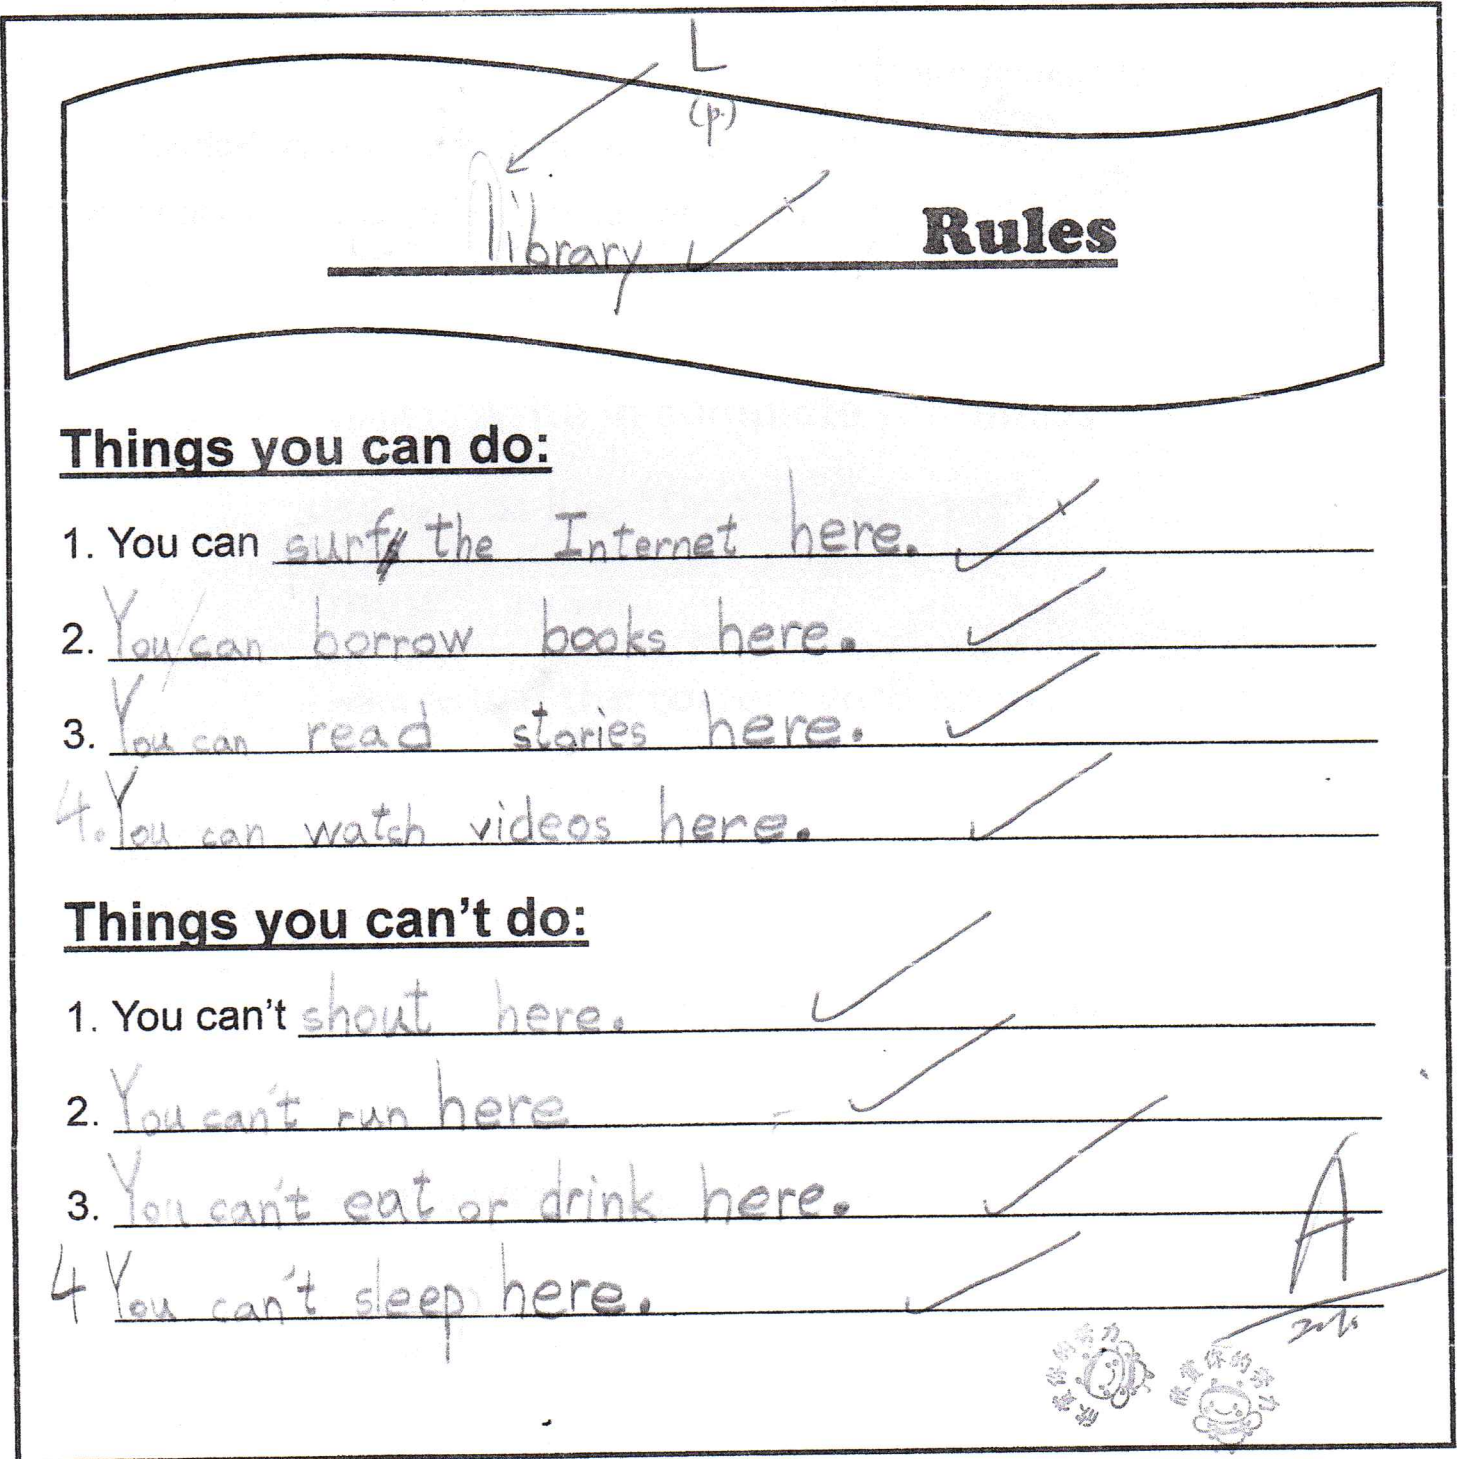 L
(p.)
library Rules
Things you can do:
1. You can surf the Internet here.
2. You can borrow books here.
3. You can read stories here.
4. You can watch videos here.
Things you can't do:
1. You can't shout here.
2. You can't run here
3. You can't eat or drink here.
4 You can't sleep here.
A
欣賞你的努力
欣賞你的努力